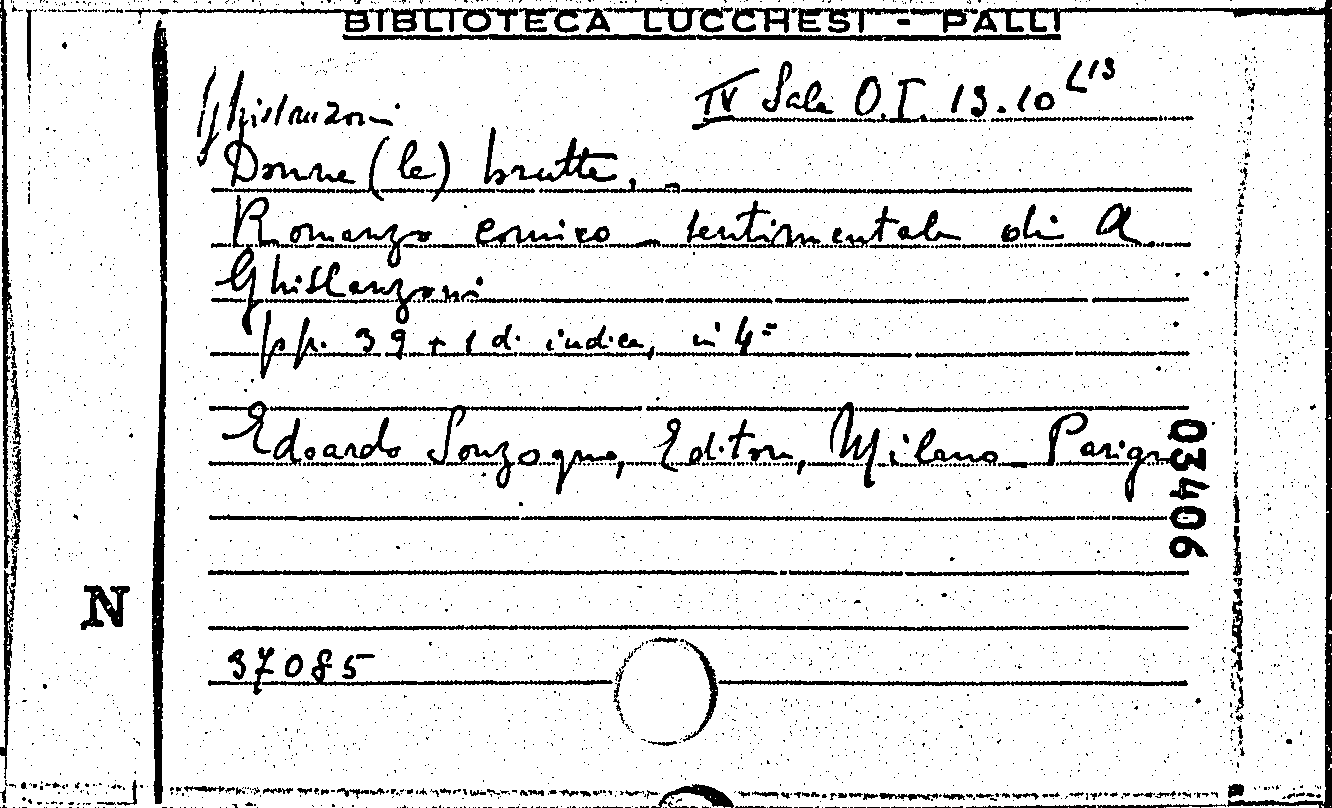 BIBLIOTECA LUCCHESI - PALLI
Ghislanzoni
IV Sala O.I. 13.10 L13
Donne (le) brutte. -
Romanzo comico - sentimentale di A.
Ghislanzoni
pp. 39 + 1 di indice, in 4°
Edoardo Sonzogno, Editore, Milano - Parigi
03406
N
37085